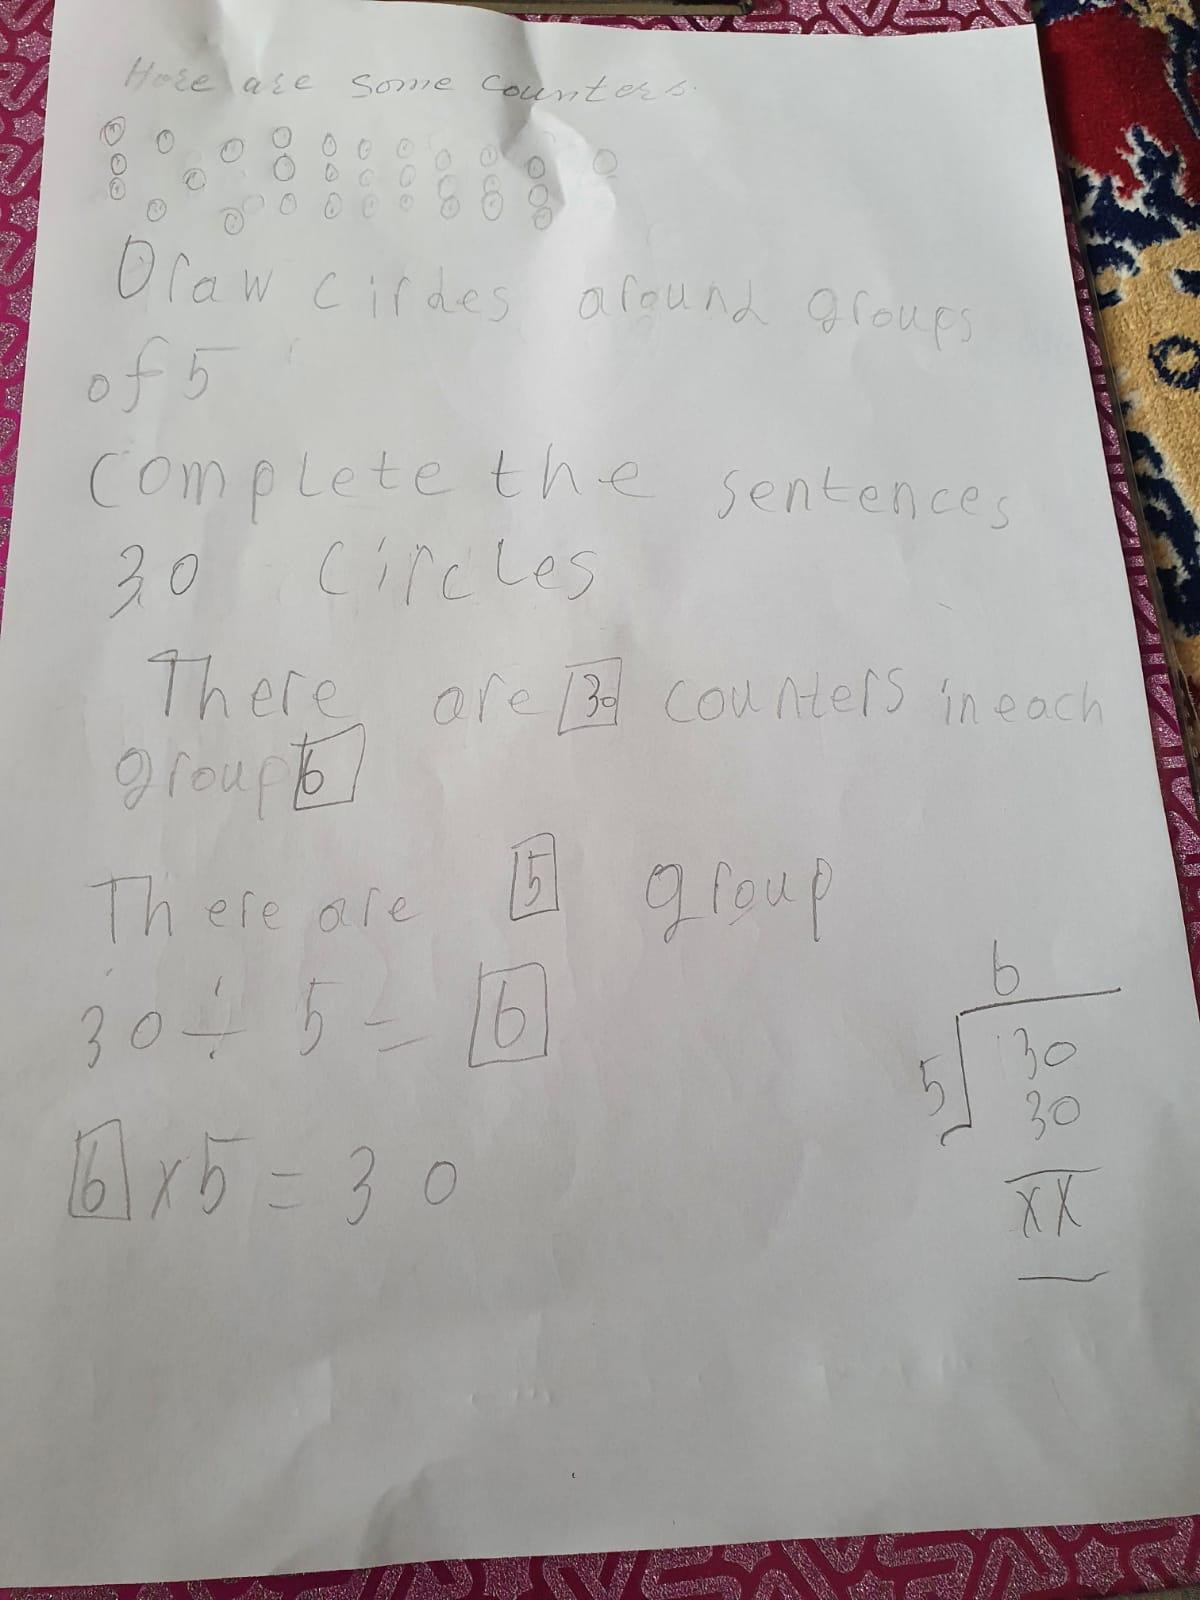 Here are some counters.
Draw circles around groups
of 5
Complete the sentences
30 Circles
There are 30 counters in each
group 6
There are 5 group
30 ÷ 5 = 6
6 x 5 = 30
6
5 30
30
XX